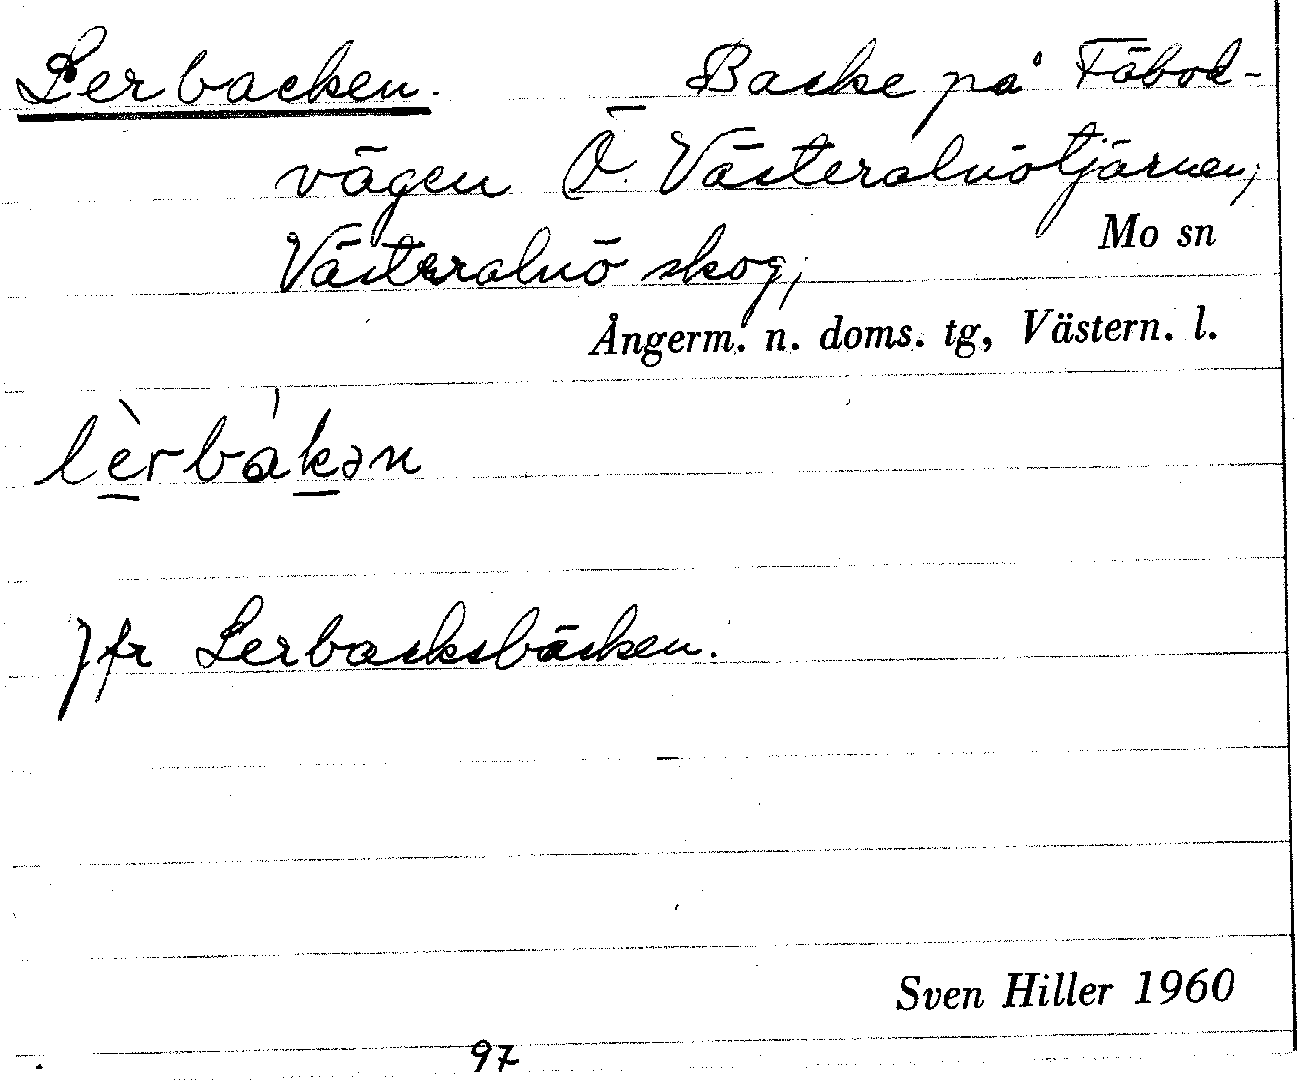 Lerbacken. Backe på Fäbod-
vägen Ö. Västeralnötjärnen,
Västeralnö skog, Mo sn
Ångerm. n. doms. tg, Västern. l.
lèrbákən
Jfr Lerbacksbäcken.
Sven Hiller 1960
97